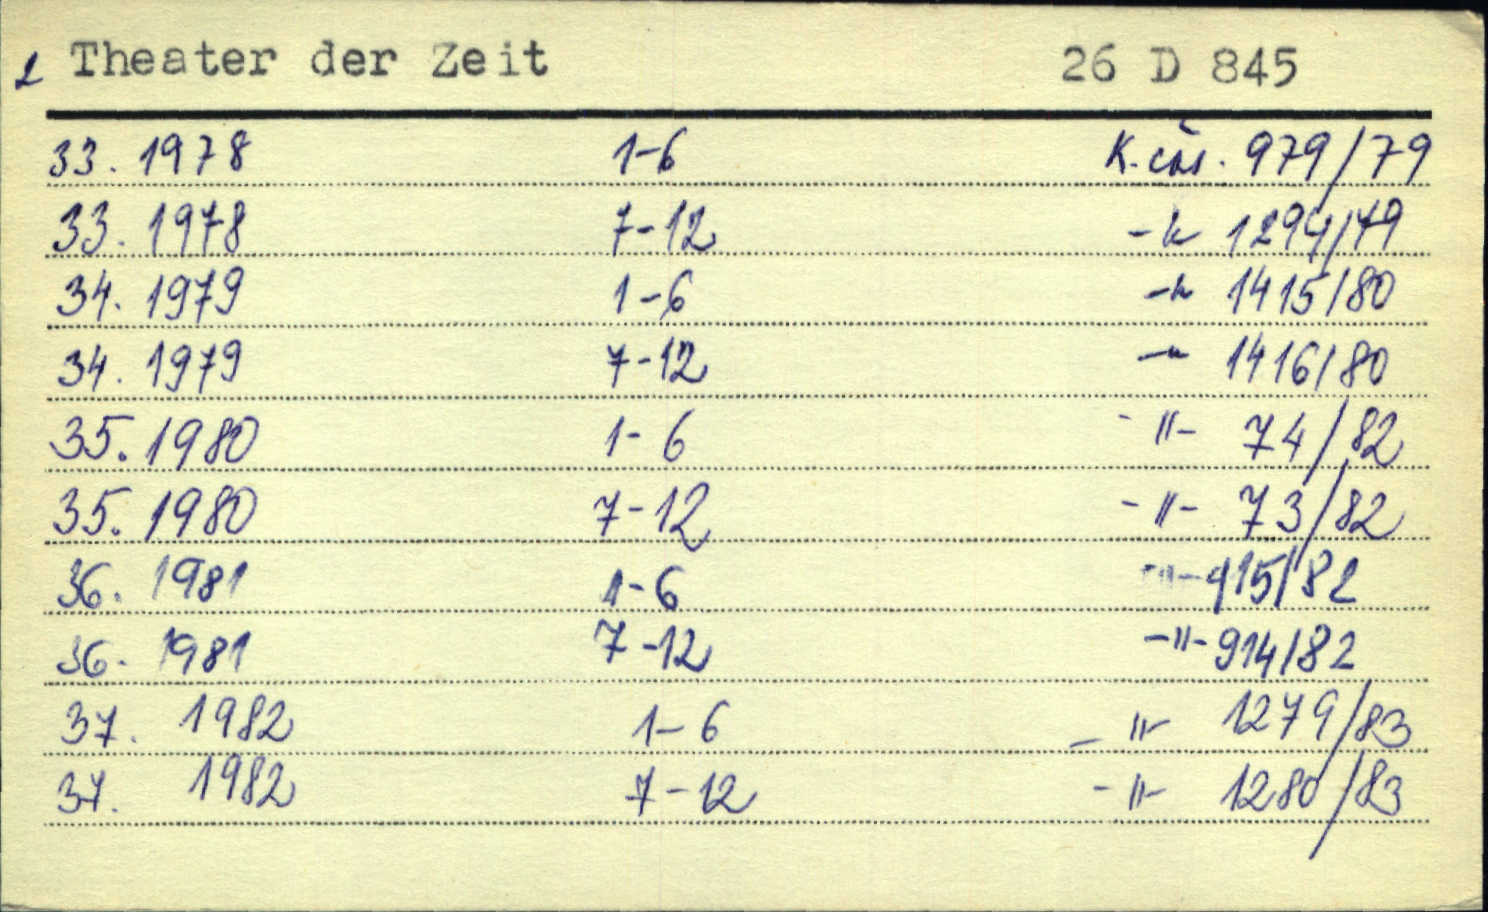 2 Theater der Zeit 26 D 845
33. 1978 1-6 K. čas. 979/79
33. 1978 7-12 -"- 1294/79
34. 1979 1-6 -"- 1415/80
34. 1979 7-12 -"- 1416/80
35. 1980 1-6 -"- 74/82
35. 1980 7-12 -"- 73/82
36. 1981 1-6 -"- 915/82
36. 1981 7-12 -"- 914/82
37. 1982 1-6 -"- 1279/83
37. 1982 7-12 -"- 1280/83